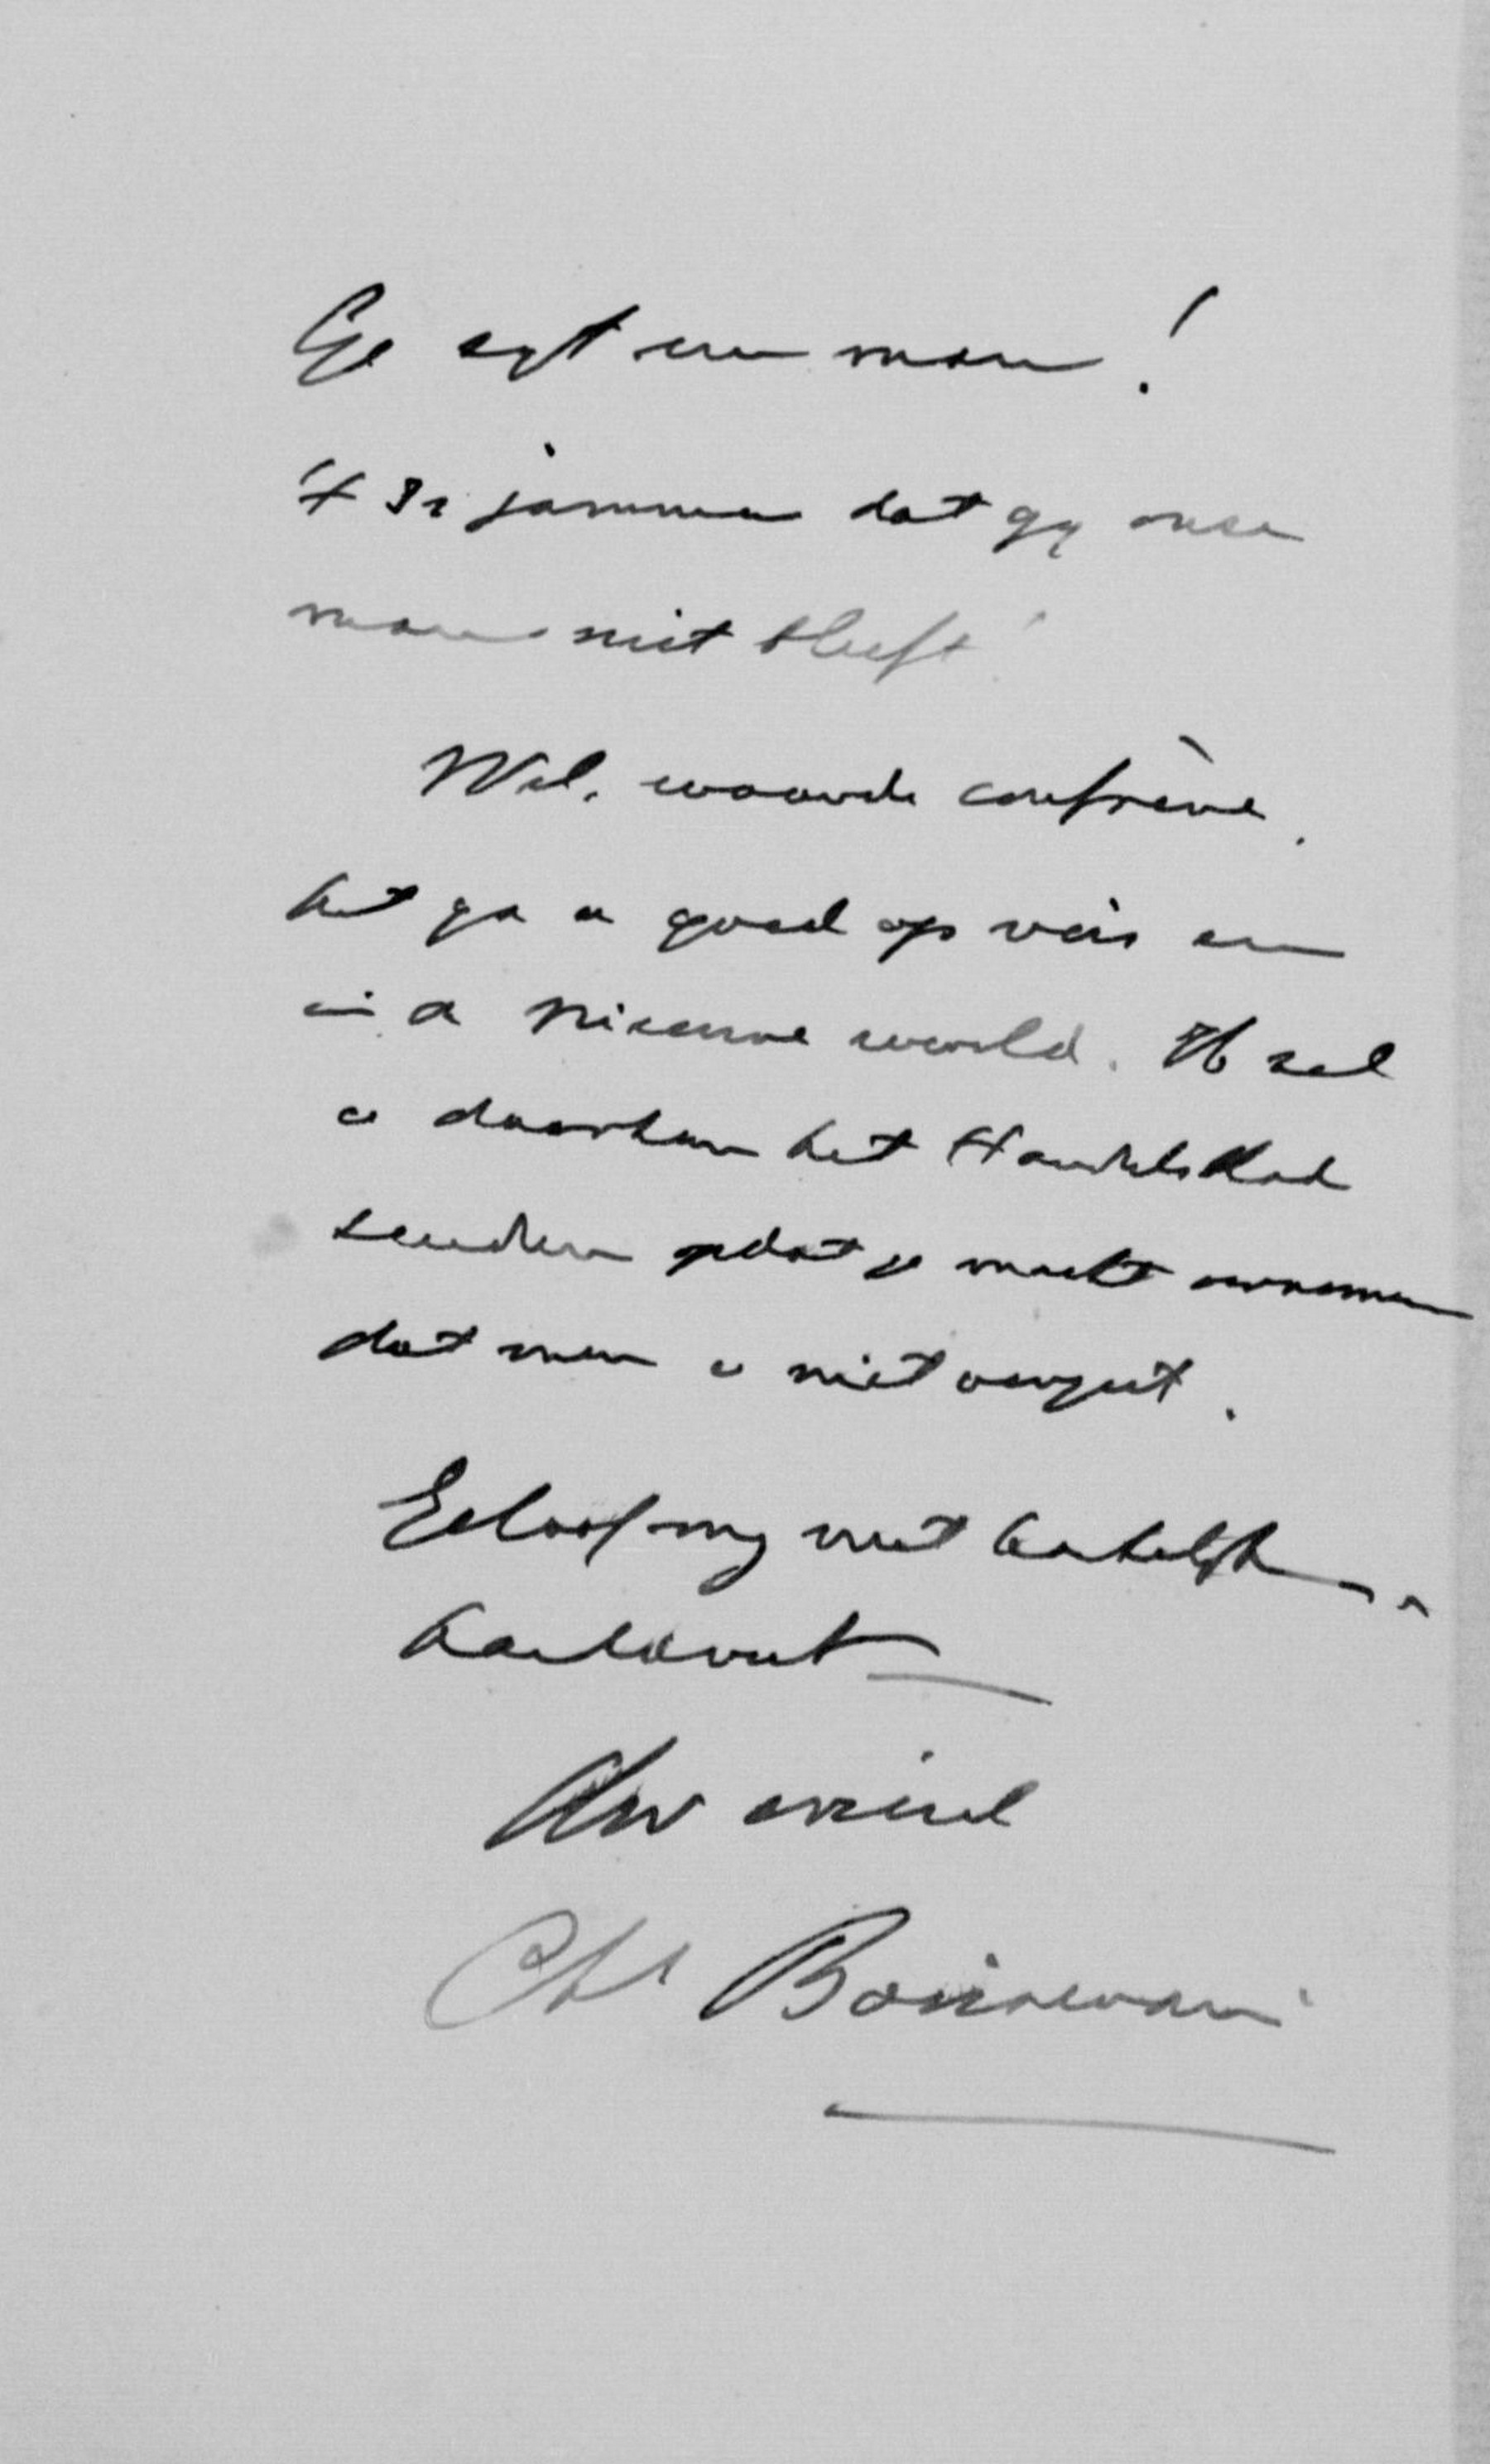 Ge zyt een man!
't Is jammer dat gy onze
man niet blyft!
Wel, waarde confrère,
het ga u goed op reis en
in de nieuwe wereld. Ik zal
u daarheen het Handelsblad
zenden opdat je moogt vernemen
dat men u niet vergeet.
Geloof my met hartelyken
handdruk
Uw vriend
Ch. Boissevain